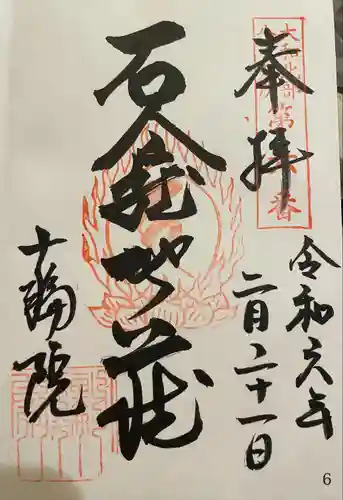 奉拝
令和六年
二月二十一日
石龕地蔵
十輪院
6